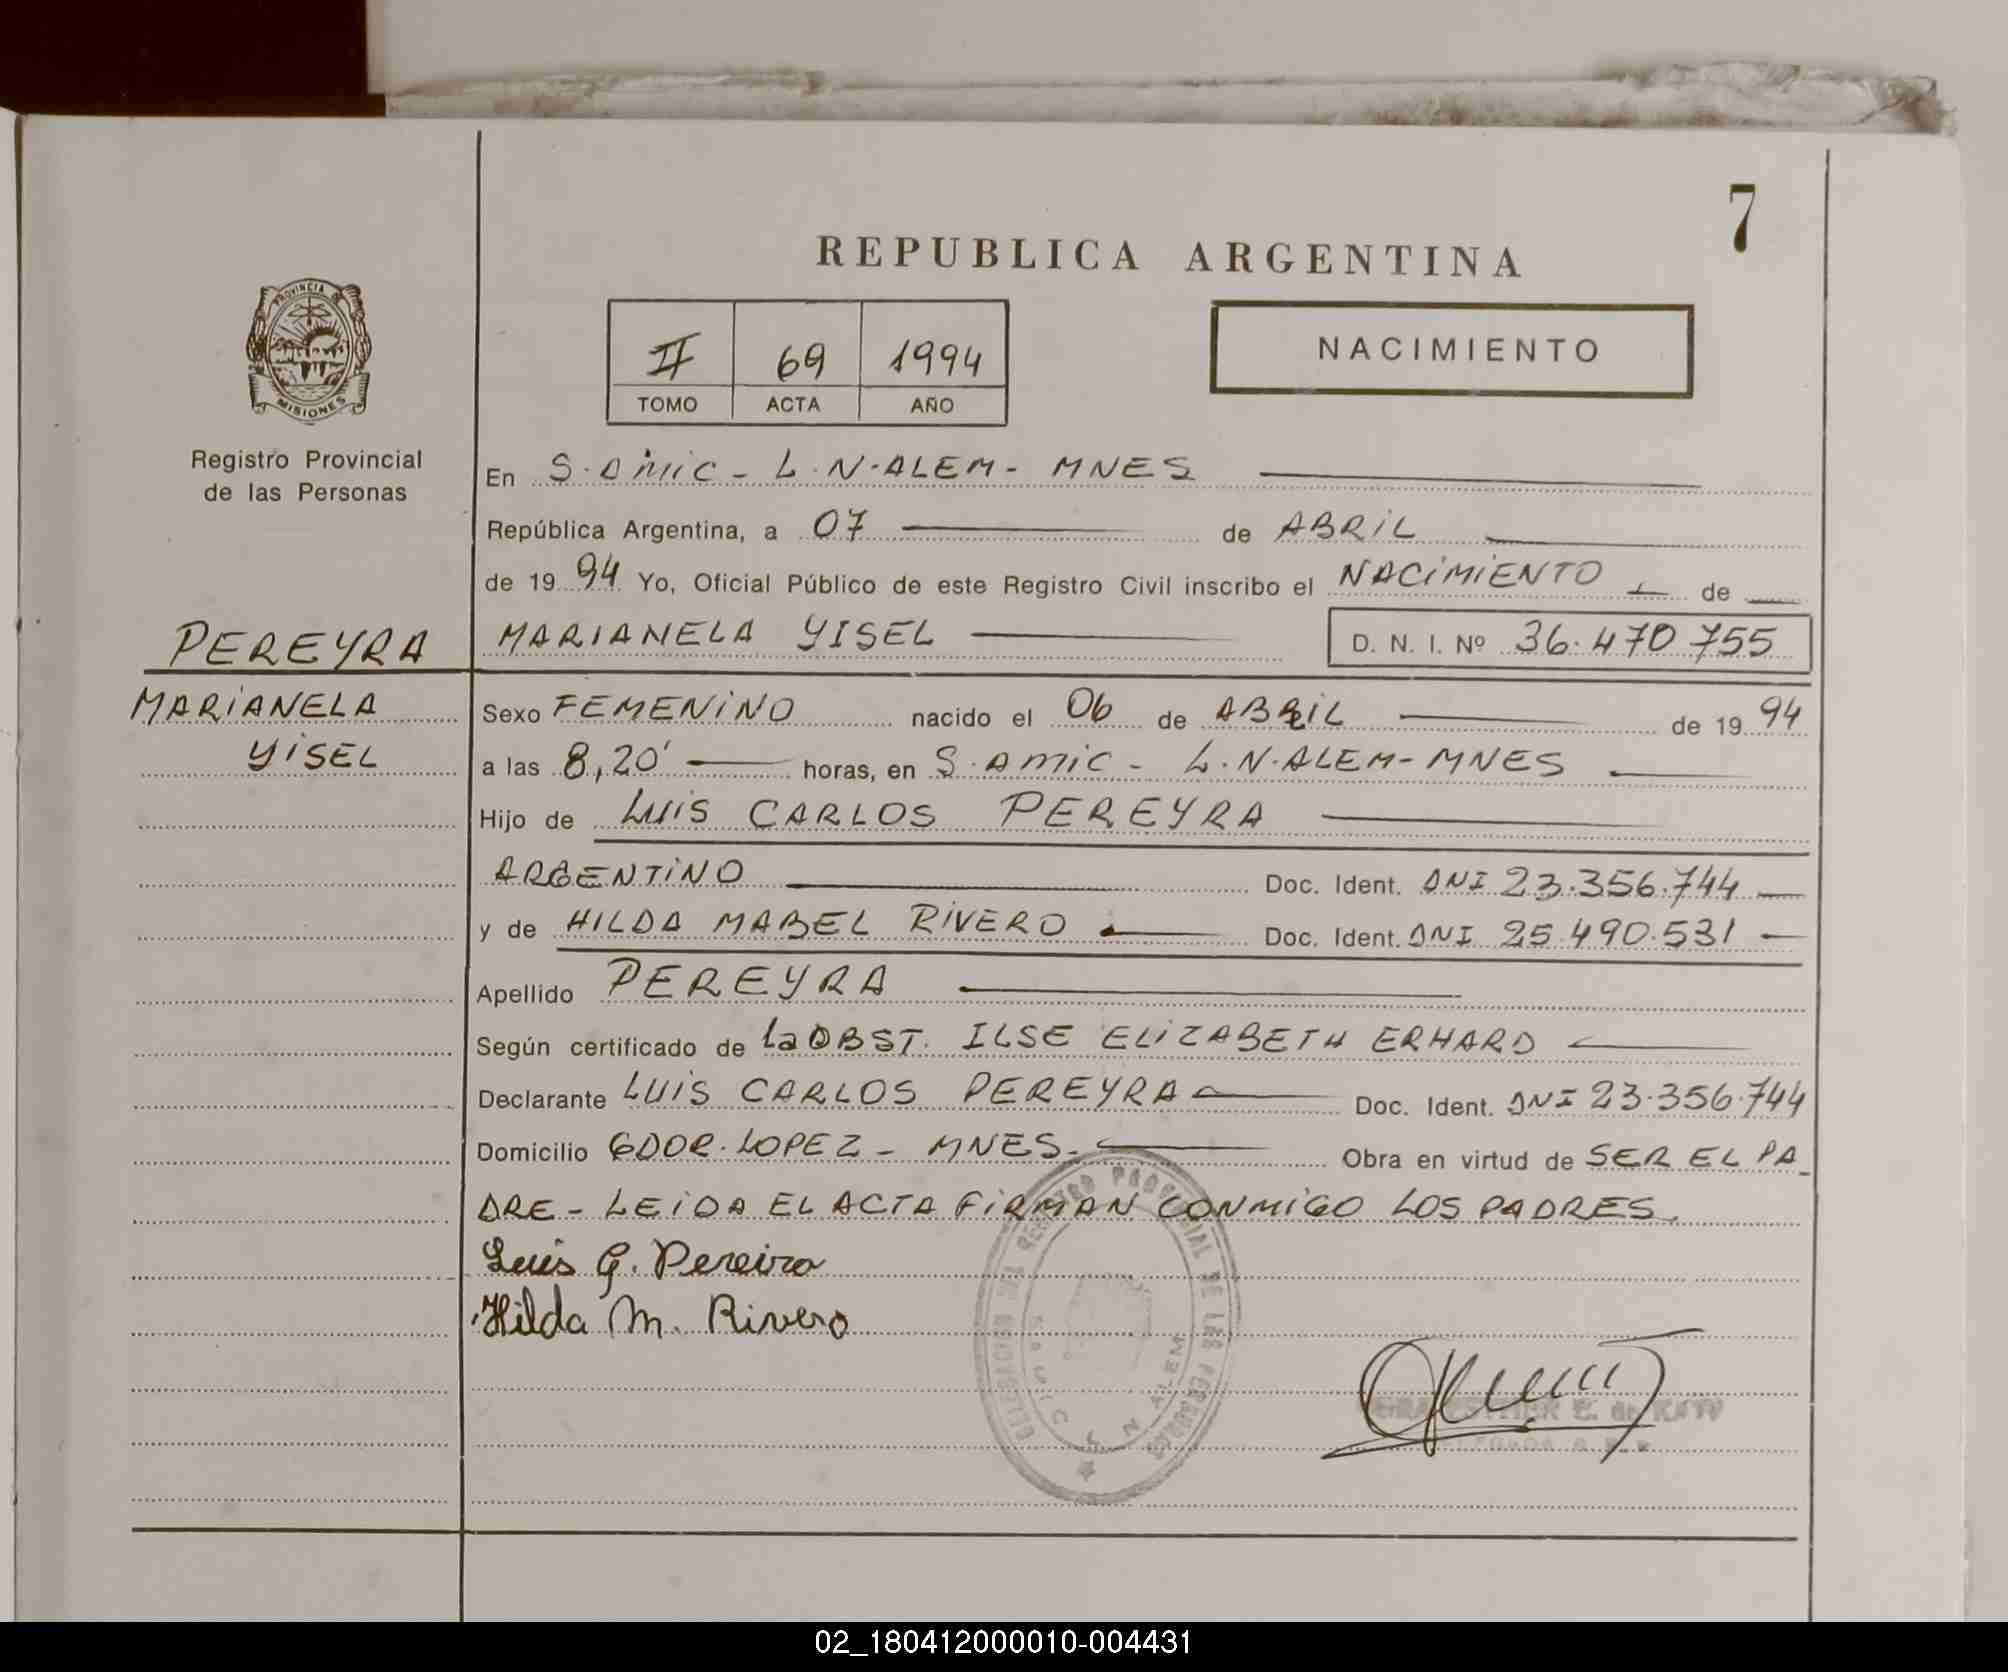 7
REPUBLICA ARGENTINA
PROVINCIA DE
MISIONES
Registro Provincial
de las Personas
II 69 1994
TOMO ACTA AÑO
NACIMIENTO
En S. AMIC - L.N. ALEM - MNES
República Argentina, a 07 de ABRIL
de 1994 Yo, Oficial Público de este Registro Civil inscribo el NACIMIENTO de
PEREYRA
MARIANELA
YISEL
MARIANELA YISEL D. N. I. Nº 36.470.755
Sexo FEMENINO nacido el 06 de ABRIL de 1994
a las 8,20' horas, en S. AMIC - L.N. ALEM - MNES
Hijo de LUIS CARLOS PEREYRA
ARGENTINO Doc. Ident. DNI 23.356.744
y de HILDA MABEL RIVERO Doc. Ident. DNI 25.490.531
Apellido PEREYRA
Según certificado de la OBST. ILSE ELIZABETH ERHARD
Declarante LUIS CARLOS PEREYRA Doc. Ident. DNI 23.356.744
Domicilio GDOR. LOPEZ - MNES. Obra en virtud de SER EL PA-
DRE - LEIDA EL ACTA FIRMAN CONMIGO LOS PADRES.
Luis C. Pereira
Hilda M. Rivero
DELEGACION DEL REGISTRO PROVINCIAL DE LAS PERSONAS
N ALEM
02_180412000010-004431